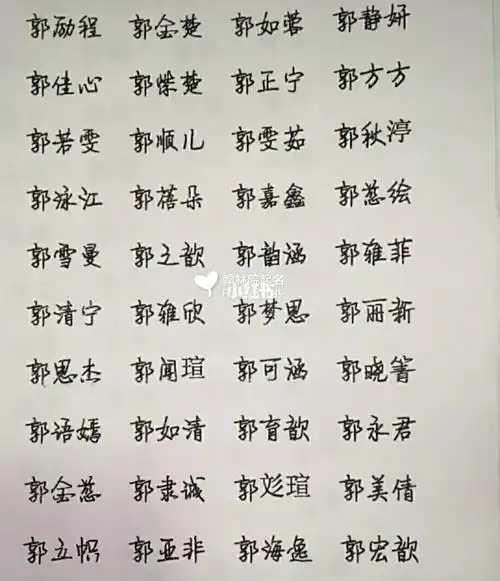 郭励程 郭金楚 郭如蓉 郭静妍
郭佳心 郭燦楚 郭正宁 郭方方
郭若雯 郭顺儿 郭雯茹 郭秋渟
郭泳江 郭蓓朵 郭嘉鑫 郭慈绘
郭雪曼 郭之歆 郭韵涵 郭雅菲
翰林院起名
小红书
郭清宁 郭雅欣 郭梦思 郭丽新
郭思杰 郭闻瑄 郭可涵 郭晓箐
郭语嫣 郭如清 郭育歆 郭永君
郭金慈 郭隶诚 郭彣瑄 郭美倩
郭立帜 郭亚非 郭海逸 郭宏歆